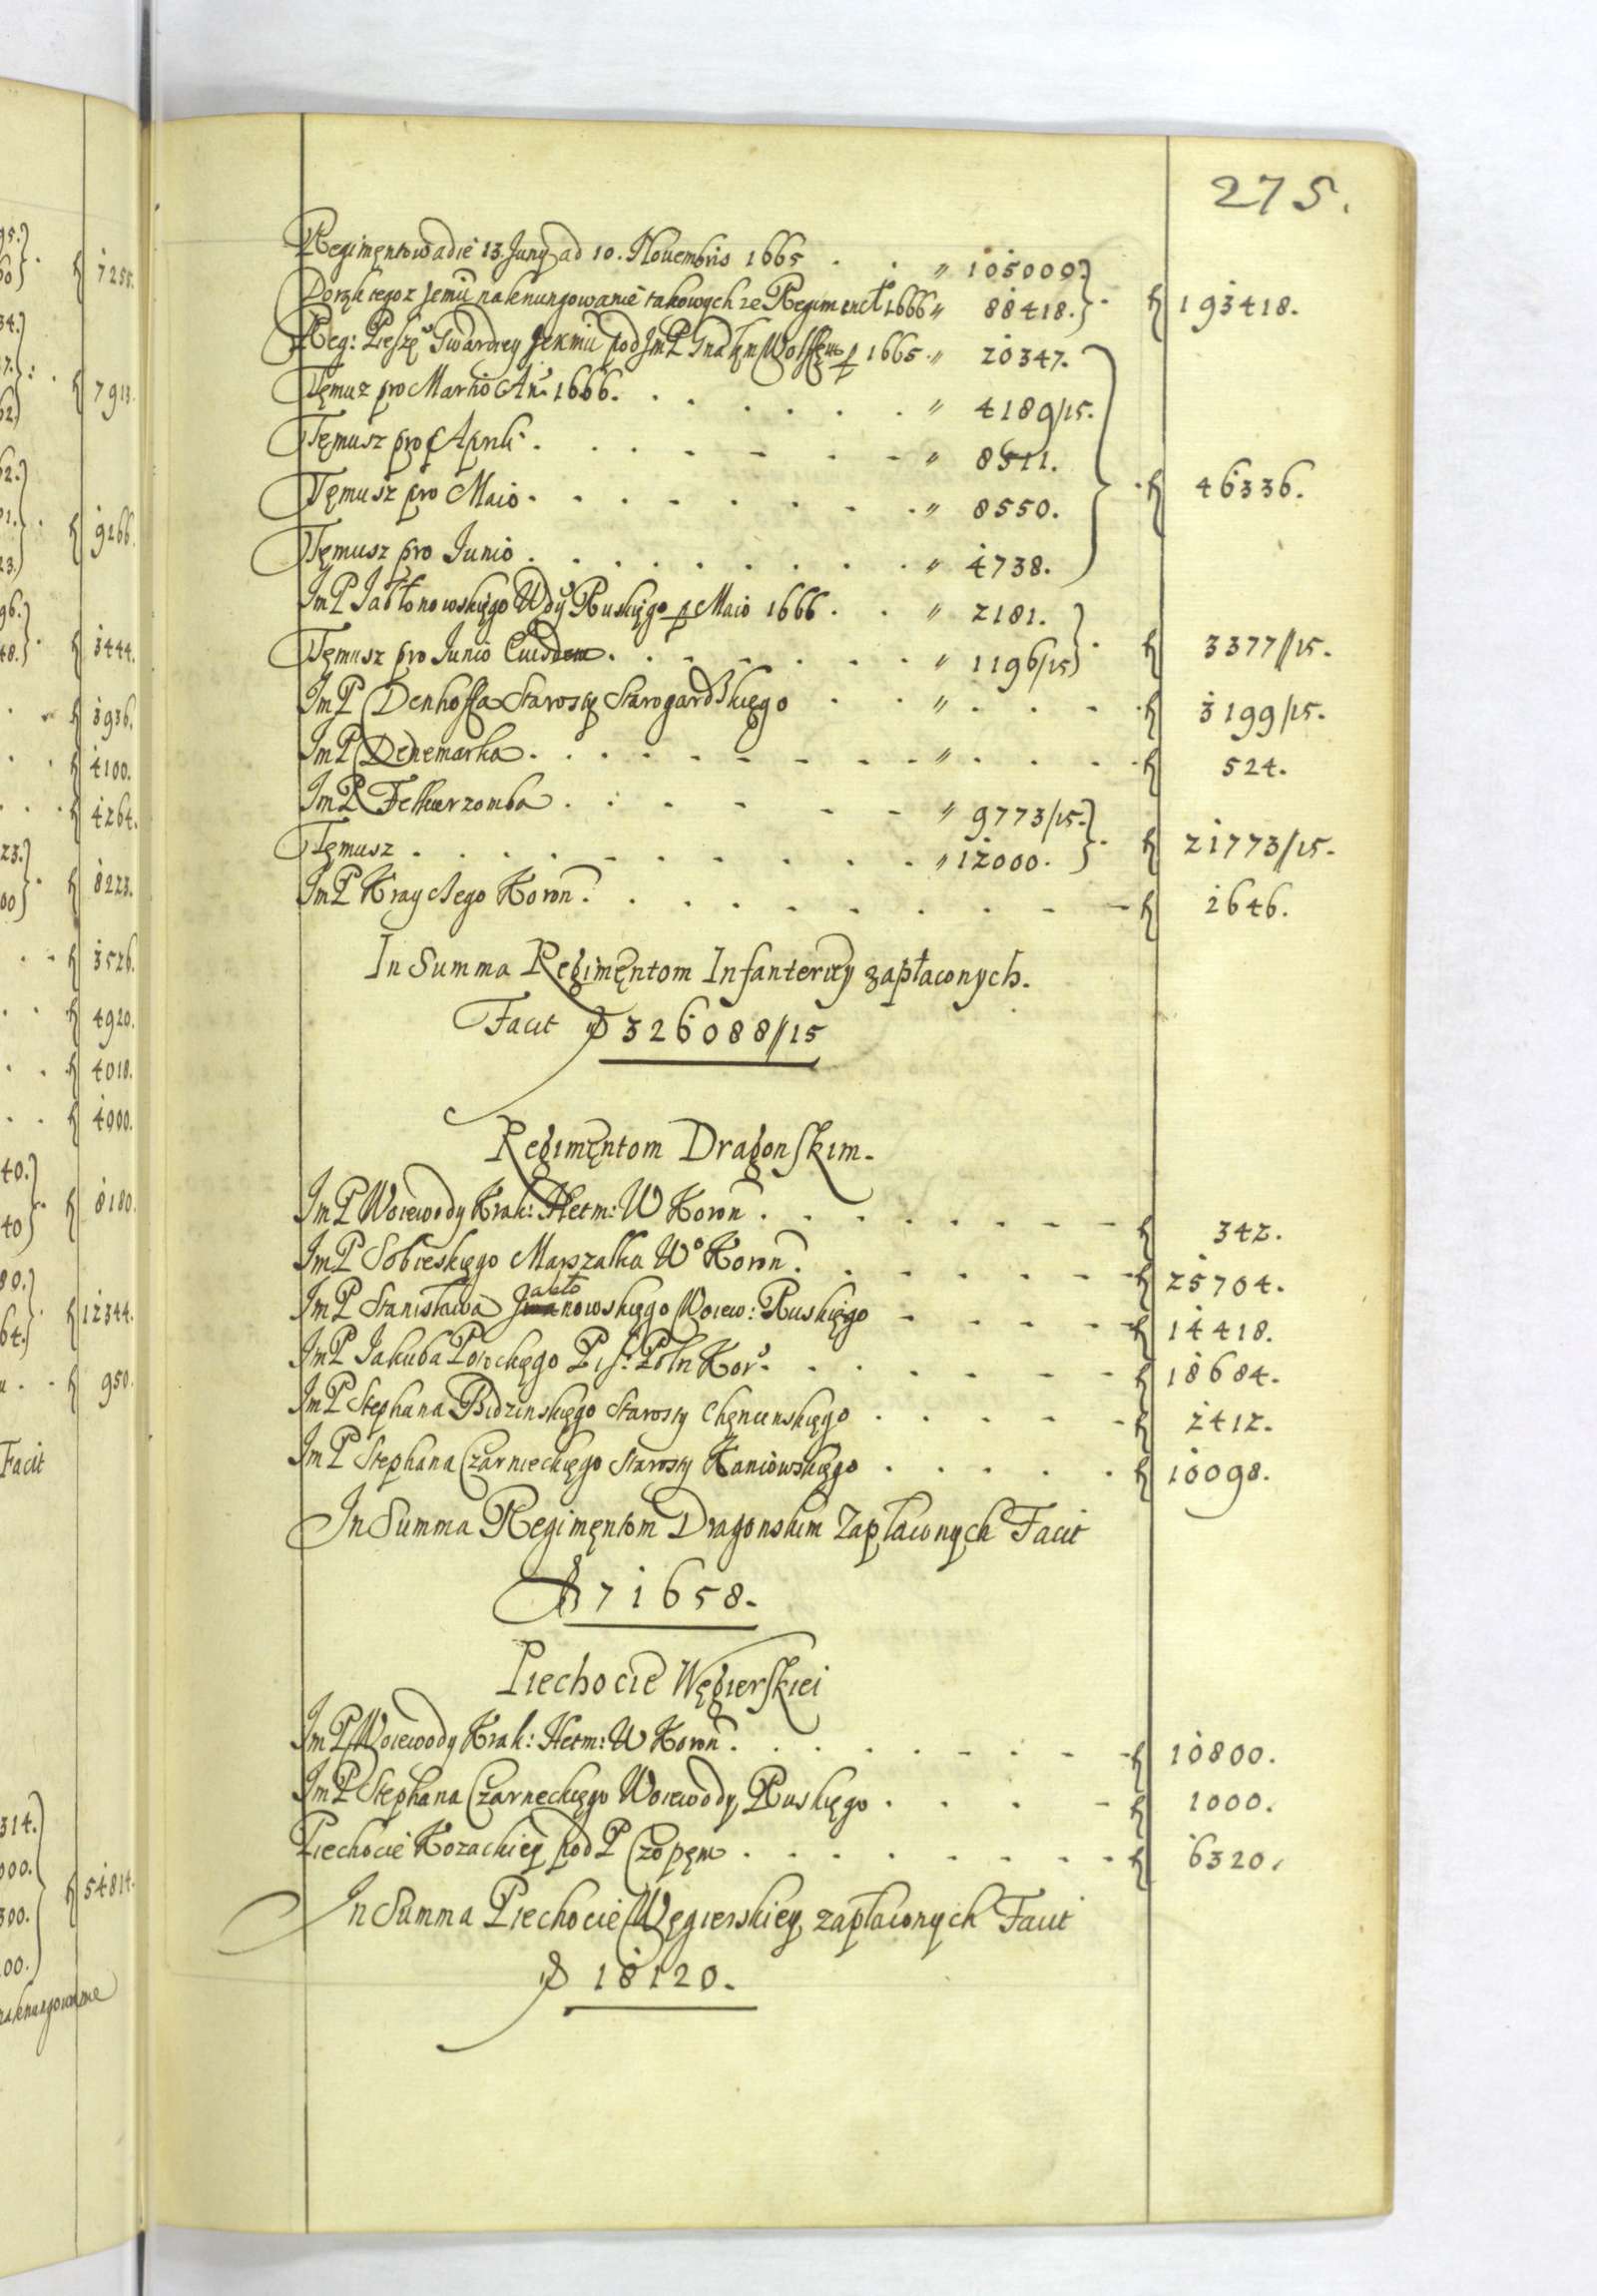 95.}
60}. ₰ 7255.
34.
7. ₰ 7913.
62.
62.
01. ₰ 9266.
23.
96.
48.}. ₰ 3444.
₰ 3936.
₰ 4100.
₰ 4264.
23.
00} ₰ 8223.
₰ 3526.
₰ 4920.
₰ 4018.
₰ 4000.
40.
40} ₰ 8180.
80.
64.} ₰ 12344.
₰ 950.
Facit
314.
000.
300. ₰ 54814.
00.
275.
Regimentowi a die 13. Juny ad 10. Novembris 1665 . . " 105000.
Do rąk tegoz Jemu na knungowanie takowych ze Regiment 1666 " 88418. } ₰ 193418.
Reg: Pieszę Gwardyey JeKMci pod JmP Gnałem Wolffem p 1665 . " 20347.
Temuz pro Martio An: 1666. . . . . . " 4189/15.
Temusz pro Aprili . . . . . - " 8511.
Temusz pro Maio . . . . . . " 8550. } ₰ 46336.
Temusz pro Junio . . . . . . . " 4738.
JmP Jabłonowskiego Wdy Ruskiego p Maio 1666 . . " 2181.
Temusz pro Junio Euisdem . . . . . . " 1196/15 } ₰ 3377//15.
JmP Denhoffa Starosty Starogardskiego . . " . . . ₰ 3199/15.
JmP Denemarka . . . . . . . " . . . ₰ 524.
JmP Felkierzomba . . . . . " 9773/15.
Temusz . . . . . . . . " 12000. } ₰ 21773/15.
JmP Krayczego Koron . . . . . . . . ₰ 2646.
In Summa Regimentom Infanteriey zapłaconych.
Facit ₰ 326088//15
Regimentom Dragonskim.
JmP Woiewody Krak: Hetm: W Koron . . . . . . . ₰ 342.
JmP Sobieskiego Marszałka Wo Koron . . . . . . ₰ 25704.
JmP Stanisława Jabłonowskiego Woiew: Ruskiego - . . . ₰ 14418.
JmP Jakuba Potockiego Pis: Poln Kor: . . . . . . ₰ 18684.
JmP Stephana Bidzinskiego Starosty Chęncinskiego . . . . ₰ 2412.
JmP Stephana Czarnieckiego Starosty Kaniowskiego . . . . . ₰ 10098.
In Summa Regimentom Dragonskim Zapłaconych Facit
₰ 71658.
Piechocie Węgierskiei
JmP Woiewody Krak: Hetm: W Koron . . . . . . . ₰ 10800.
JmP Stephana Czarneckiego Woiewody Ruskiego . . . - ₰ 1000.
Piechocie Kozackiey pod P Czopem . . . . . . . ₰ 6320.
In Summa Piechocie Węgierskiey zapłaconych Facit
₰ 18120.